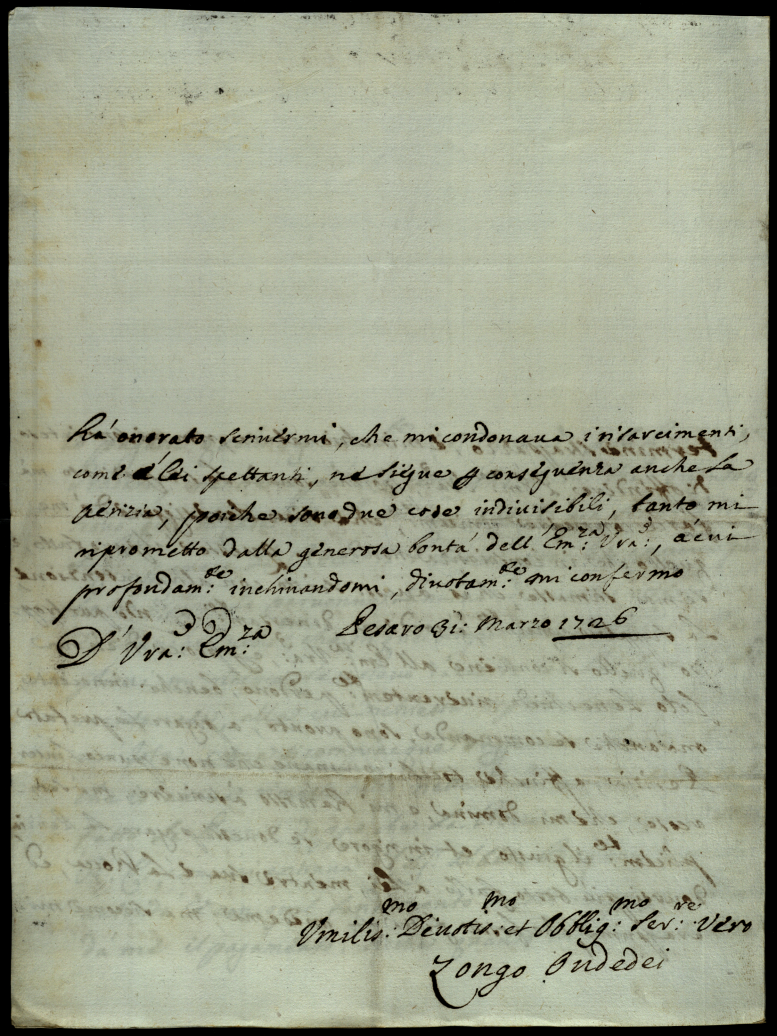 hà onorato scrivermi, che mi condonava i risarcimenti,
come à lei spettanti, ne siegue p conseguenza anche la
perizia, poiche sono due cose indivisibili, tanto mi
riprometto dalla generosa bontà dell'Em:za Vra:, à cui
profondam:te inchinandomi, divotam:te mi confermo
D' Vra: Em:za Pesaro 31: Marzo 1726
Umilis:mo Divotis:mo et Obblig:mo Ser:re Vero
Zongo Ondedei